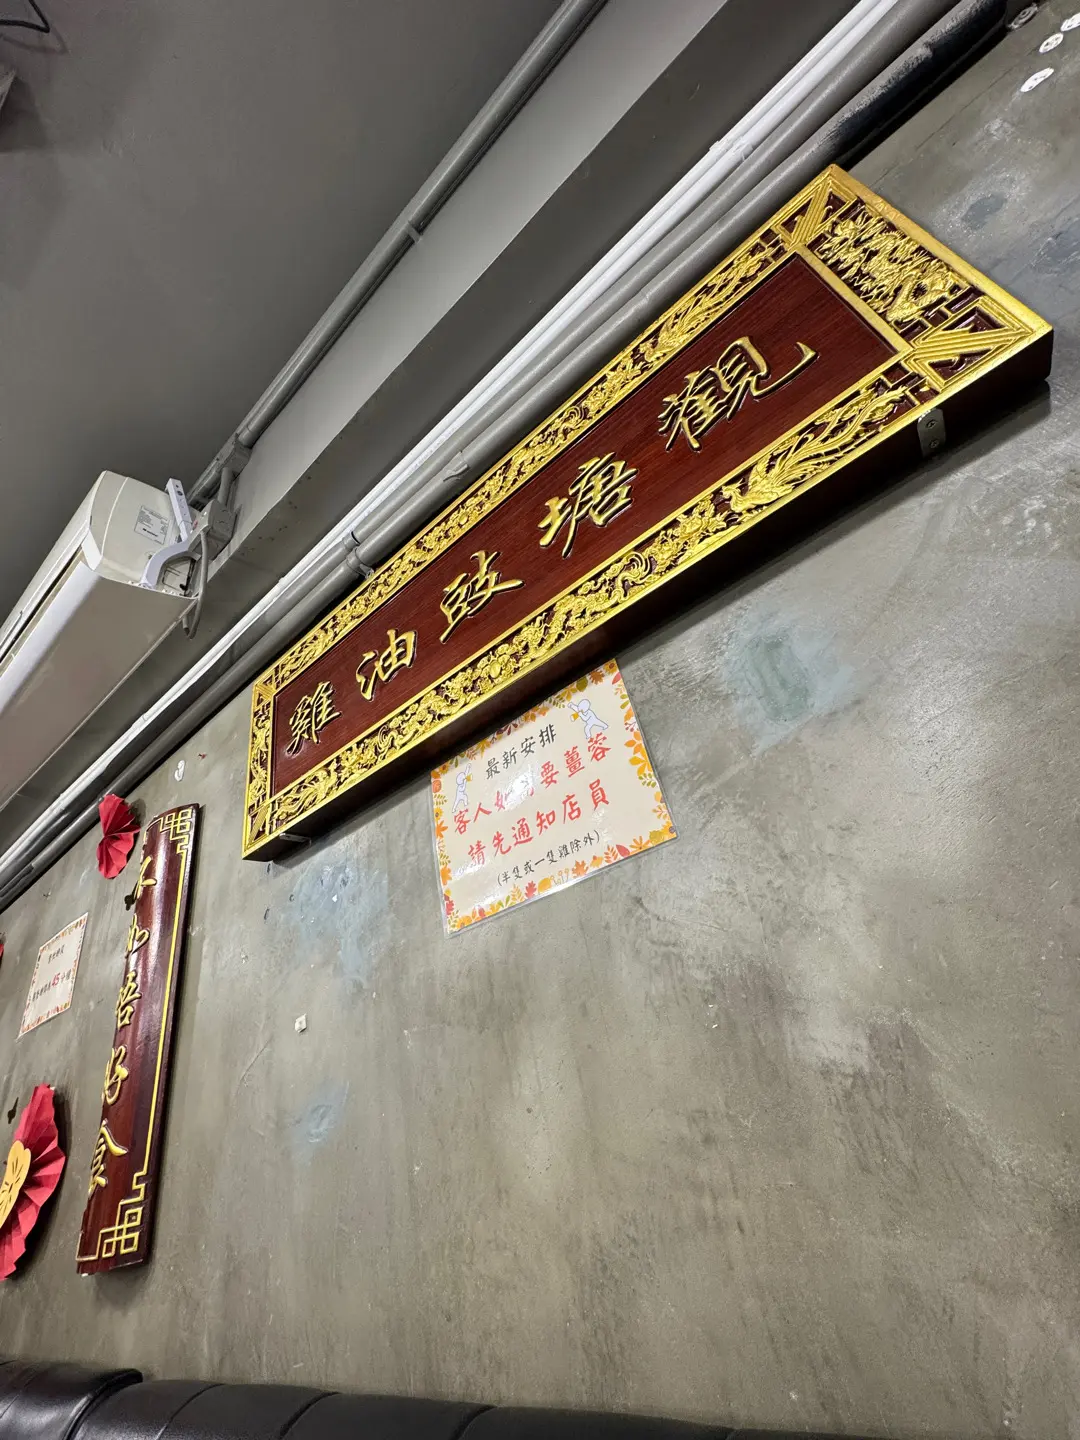 觀塘豉油雞
最新安排
客人如需要薑蓉
請先通知店員
(半隻或一隻雞除外)
不如唔好食
45分鐘